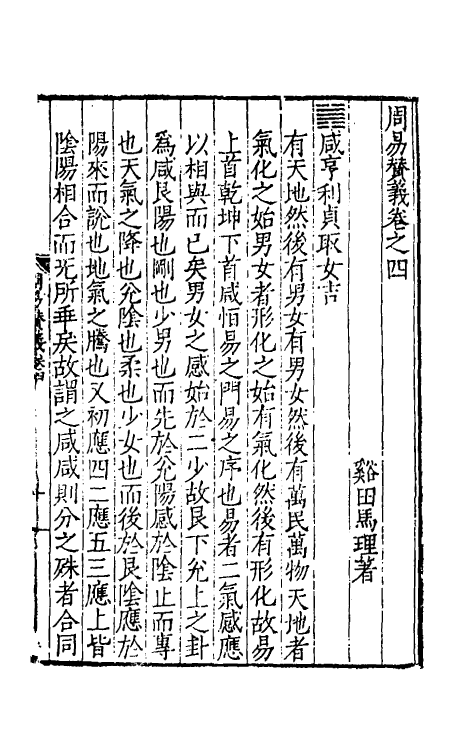 周易贊義卷之四
谿田馬理著
䷞咸亨利貞取女吉
有天地然後有男女有男女然後有萬民萬物天地者
氣化之始男女者形化之始有氣化然後有形化故易
上首乾坤下首咸恒易之門易之序也易者二氣感應
以相與而已矣男女之感始於二少故艮下兊上之卦
爲咸艮陽也剛也少男也而先於兊陽感於陰止而專
也天氣之降也兊陰也柔也少女也而後於艮陰應於
陽來而說也地氣之騰也又初應四二應五三應上皆
陰陽相合而无所乖矣故謂之咸咸則分之殊者合同
周易贊義卷四